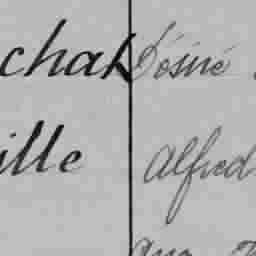 chat Désiré
ille Alfred